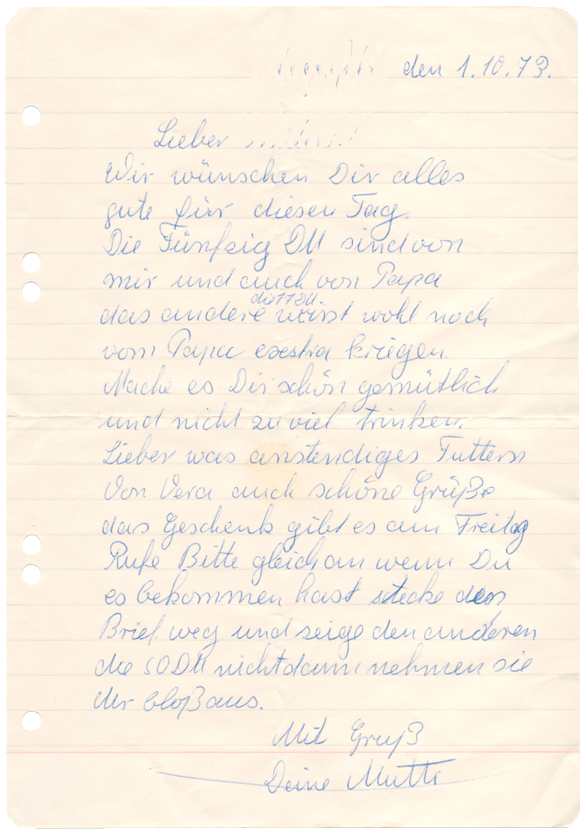 den 1.10.73.
Lieber
Wir wünschen Dir alles
gute für diesen Tag.
Die Fünfzig DM sind von
mir und auch von Papa
das andere wirst wohl noch
vom Papa exstra kriegen.
Mache es Dir schön gemütlich
und nicht zu viel trinken.
Lieber was anstendiges Futtern
Von Vera auch schöne Grüße
das Geschenk gibt es am Freitag
Rufe Bitte gleich an wenn Du
es bekommen hast stecke den
Brief weg und zeige den anderen
die 50 DM nicht dann nehmen sie
dir bloß aus.
Mit Gruß
Deine Mutti